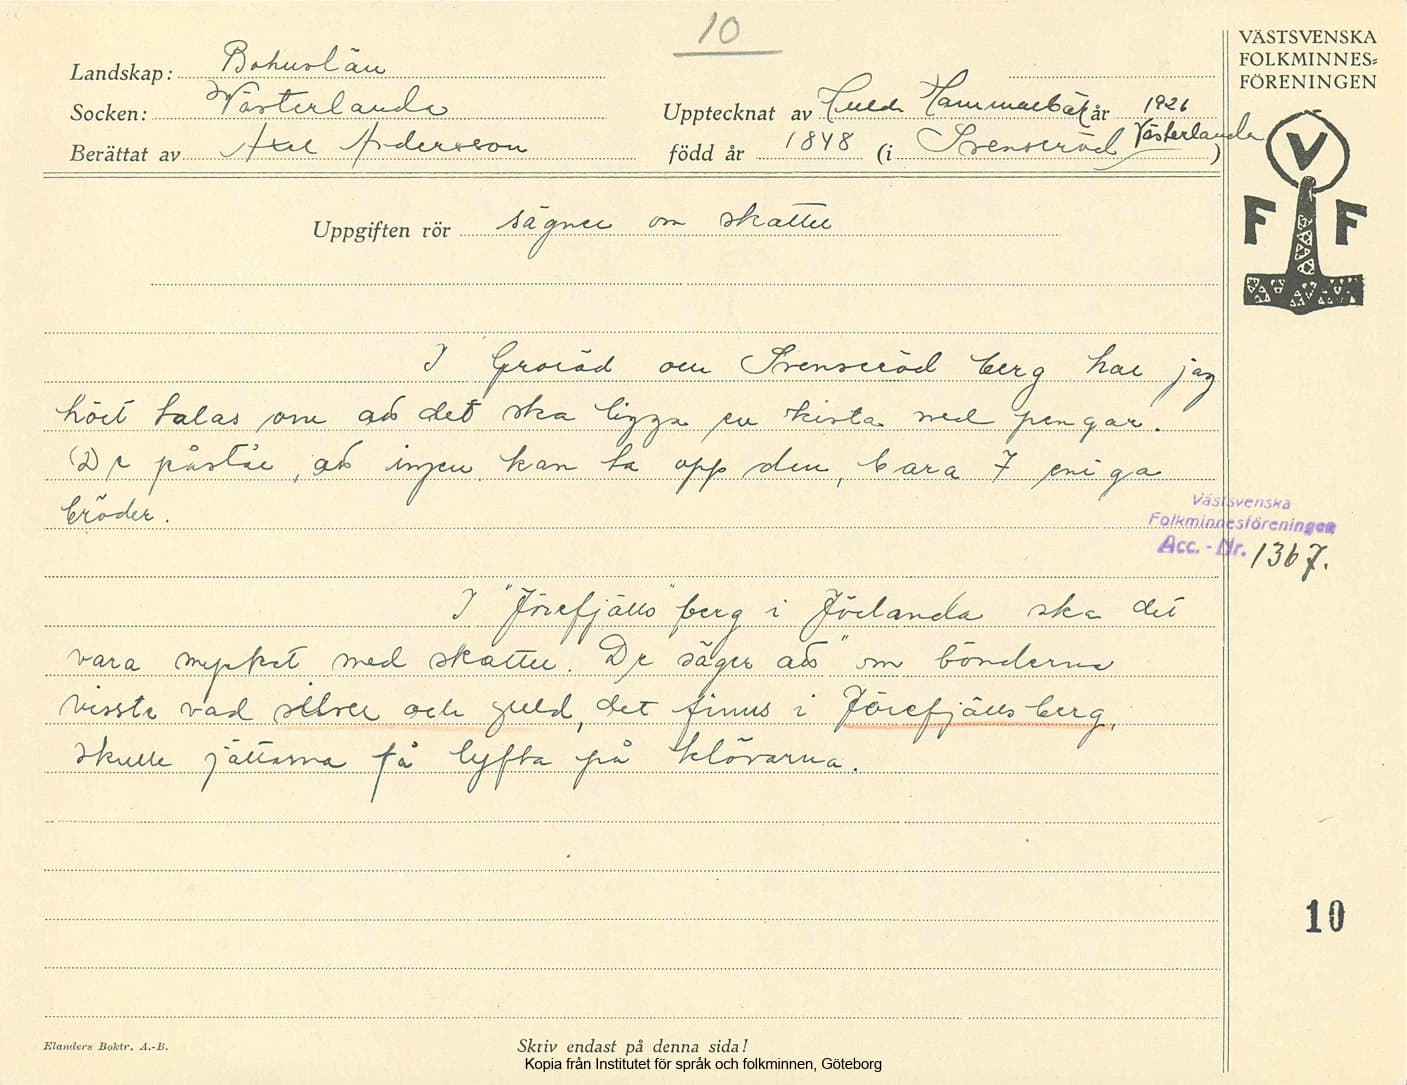 10
VÄSTSVENSKA
FOLKMINNES=
FÖRENINGEN
Landskap: Bohuslän
Socken: Västerlanda
Upptecknat av Huld Hammarbäk år 1926
Berättat av Axel Andersson
född år 1848 (i Svenseröd Västerlanda)
V
F F
Uppgiften rör sägner om skatter
I Groröd och Svenseröd berg har jag
hört talas om att det ska ligga en kista med pengar.
(De påstår, att ingen kan ta opp den, bara 7 eniga
bröder.
Västsvenska
Folkminnesföreningen
Acc. - Nr. 1367.
I "Jörefjälls" berg i Jörlanda ska det
vara mycket med skatter. De säger att "om bönderna
visste vad silver och guld, det finns i Jörefjällsberg,
skulle jättarna få lyfta på klövarna.
10
Elanders Boktr. A.-B.
Skriv endast på denna sida!
Kopia från Institutet för språk och folkminnen, Göteborg